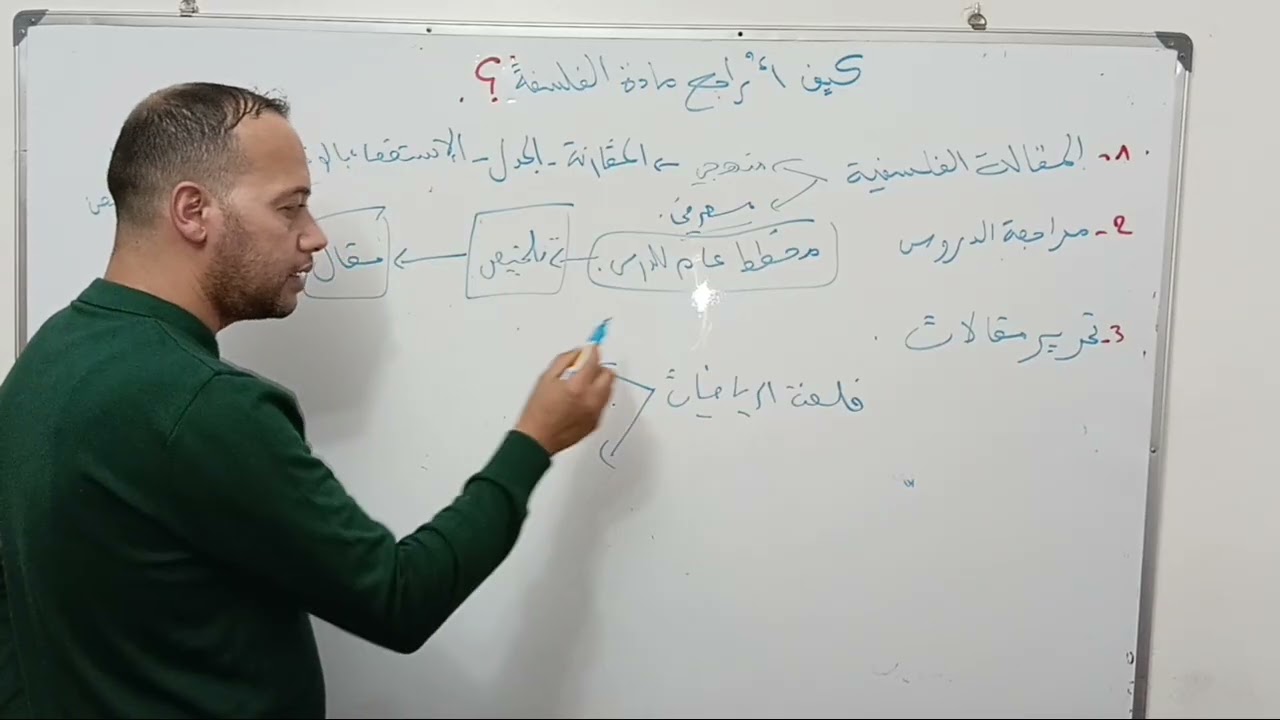 كيف أراجع مادة الفلسفة ؟
1- المقالات الفلسفية منهجي المقارنة - الجدل - الإستقصاء بالو
معرفي
2- مراجعة الدروس مخطط عام للدرس تلخيص مقال
3- تحرير مقالات
فلسفة الرياضيات